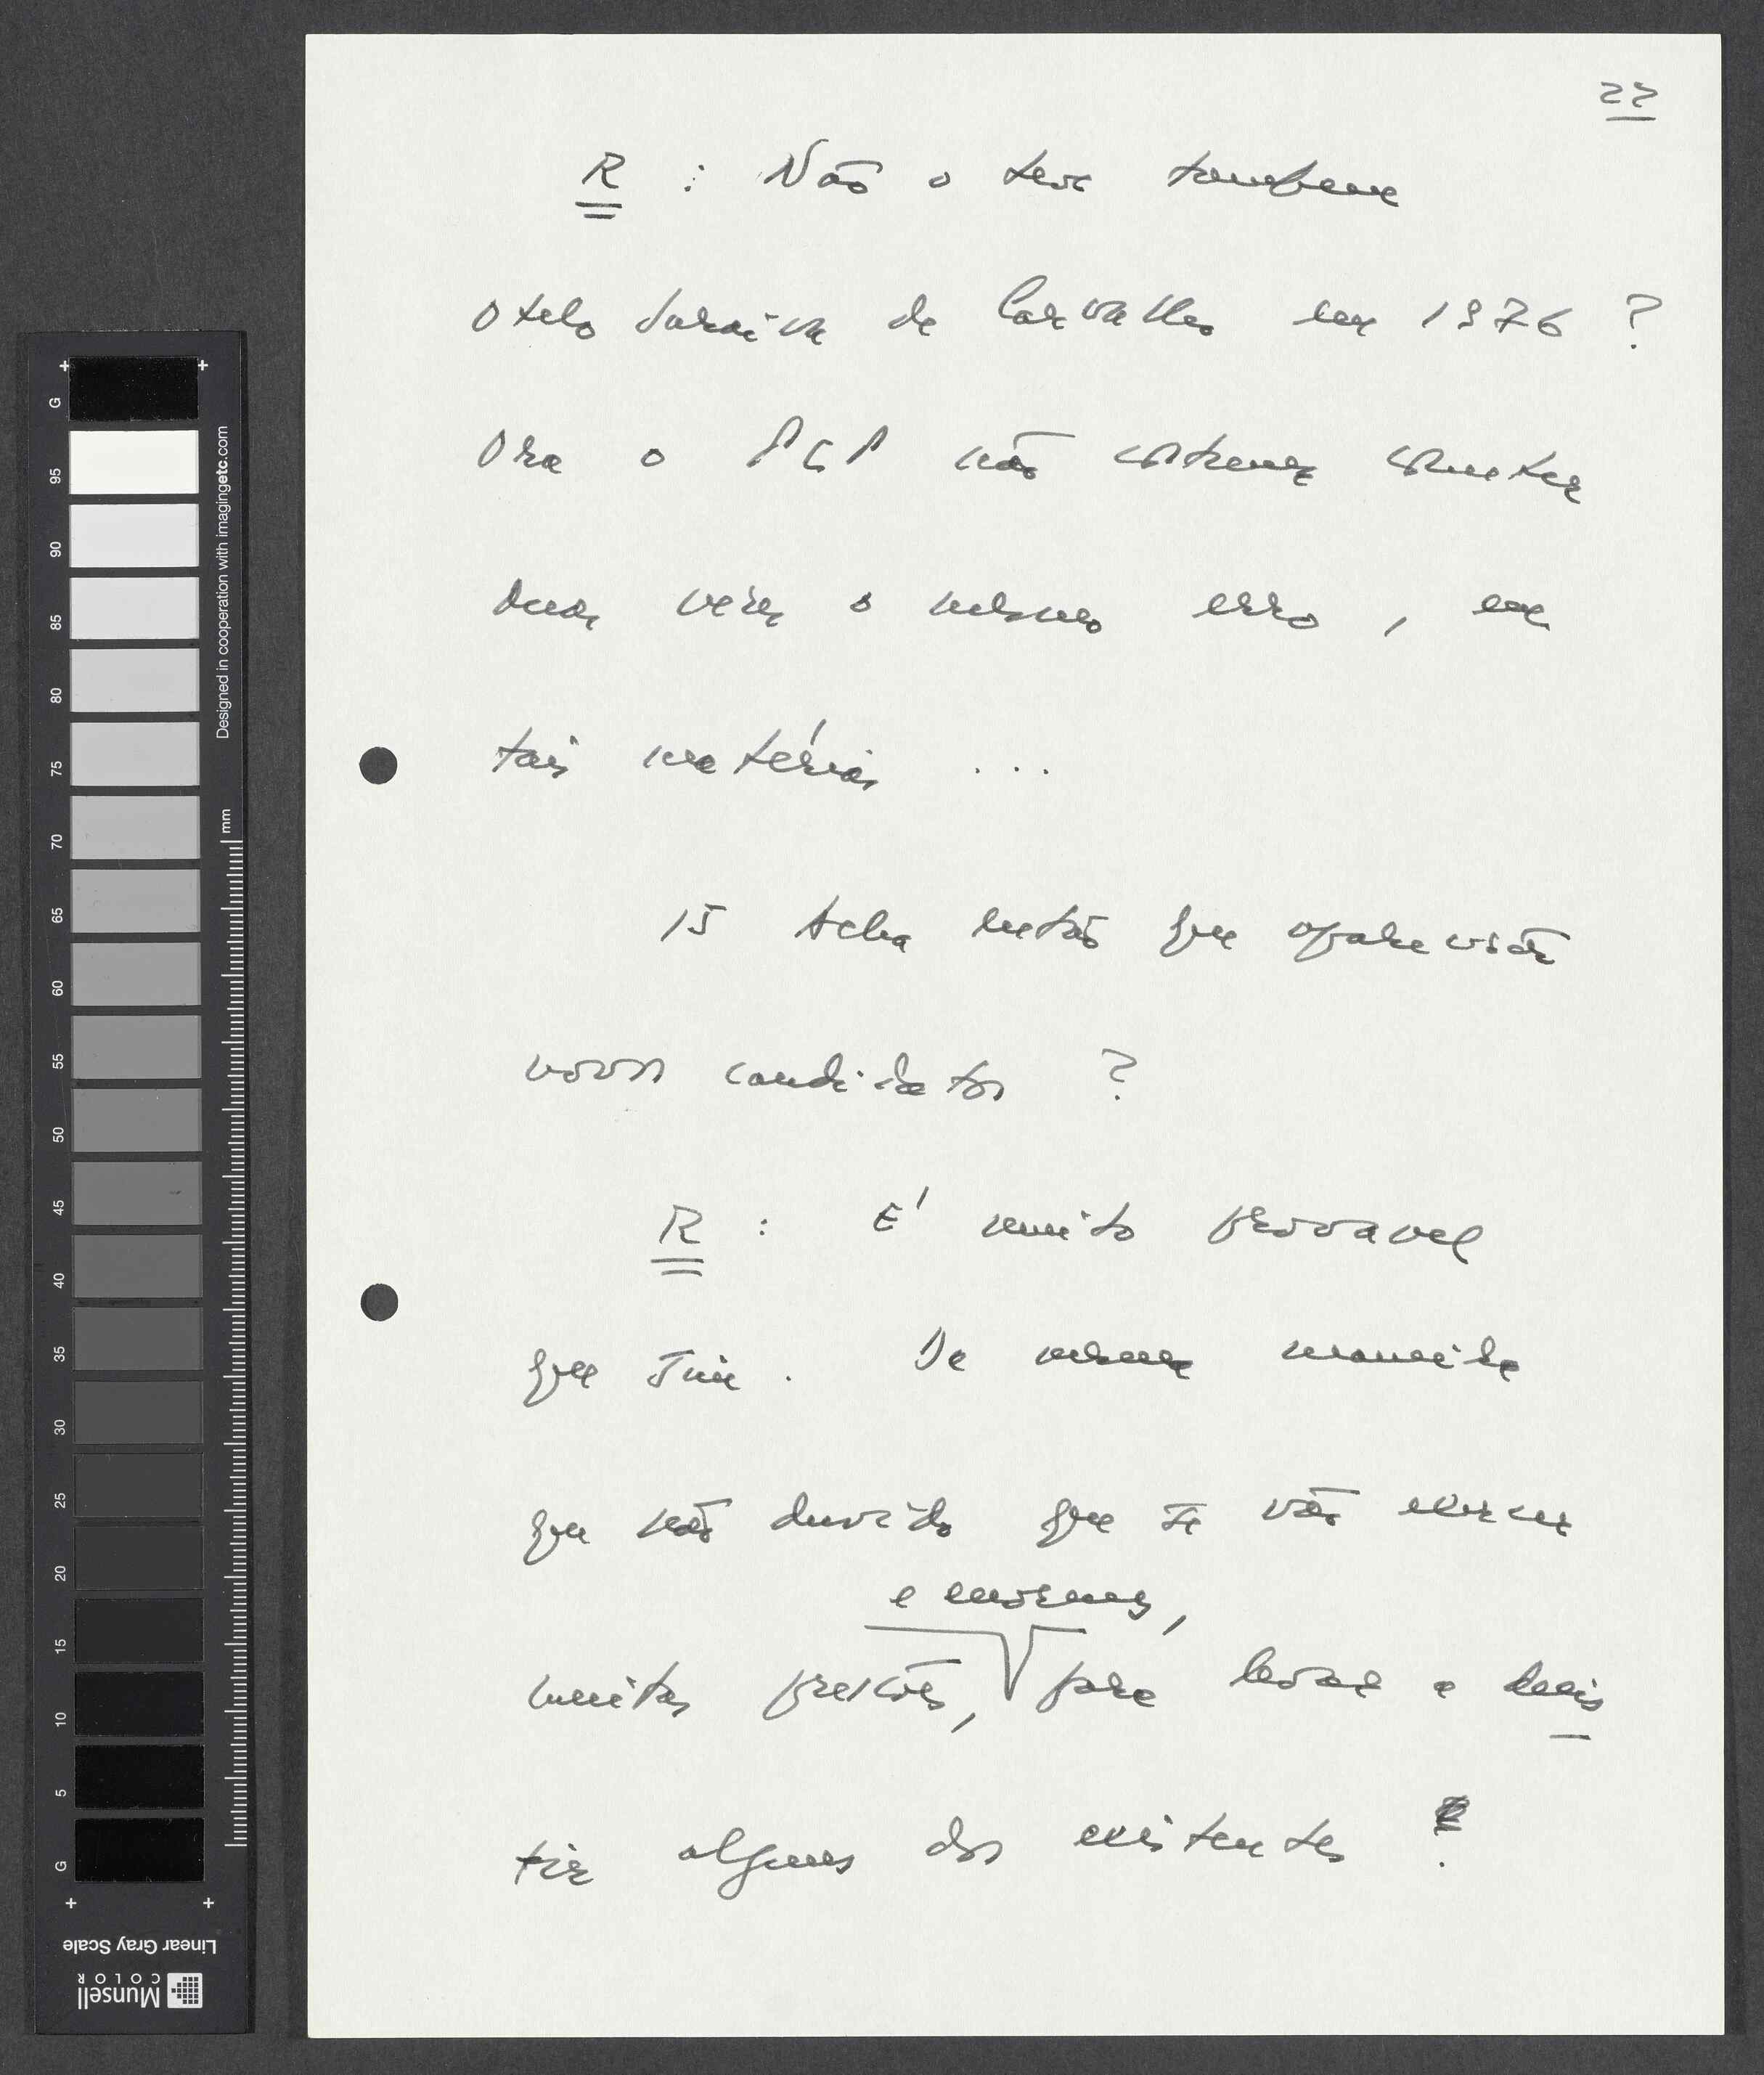 22
R : Não o teve tambem
Otelo Saraiva de Carvalho em 1976 ?
Ora o PCP não costuma cometer
duas vezes o mesmo erro, em
tais matérias ...
15 Acha então que aparecerão
novos candidatos ?
R : É muito provavel
que sim. Da mesma maneira
que não duvido que se vão exercer
e enormes,
muitas pressões, para levar a desis
tir alguns dos existentes.
G 95 90 85 80 75 70 65 60 55 50 45 40 35 30 25 20 15 10 5 G
Designed in cooperation with imagingetc.com
mm
Linear Gray Scale
Munsell
COLOR